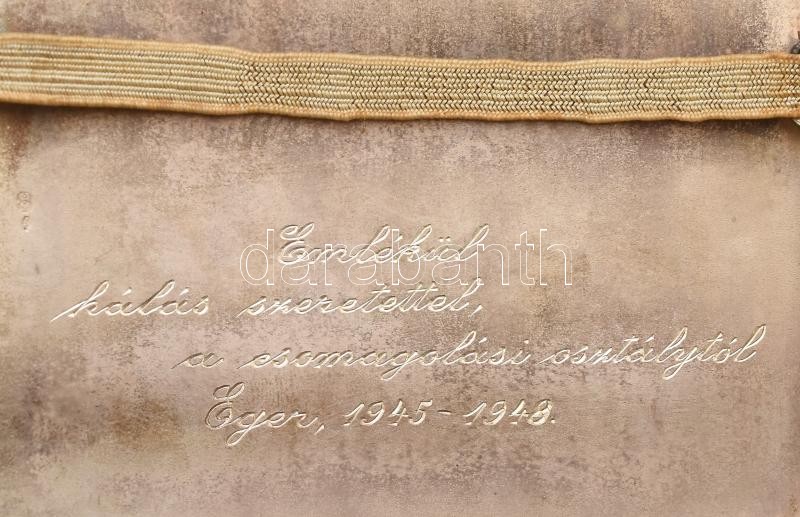 Emlékül
darabanth
hálás szeretettel,
a csomagolási osztálytól
Eger, 1945-1948.